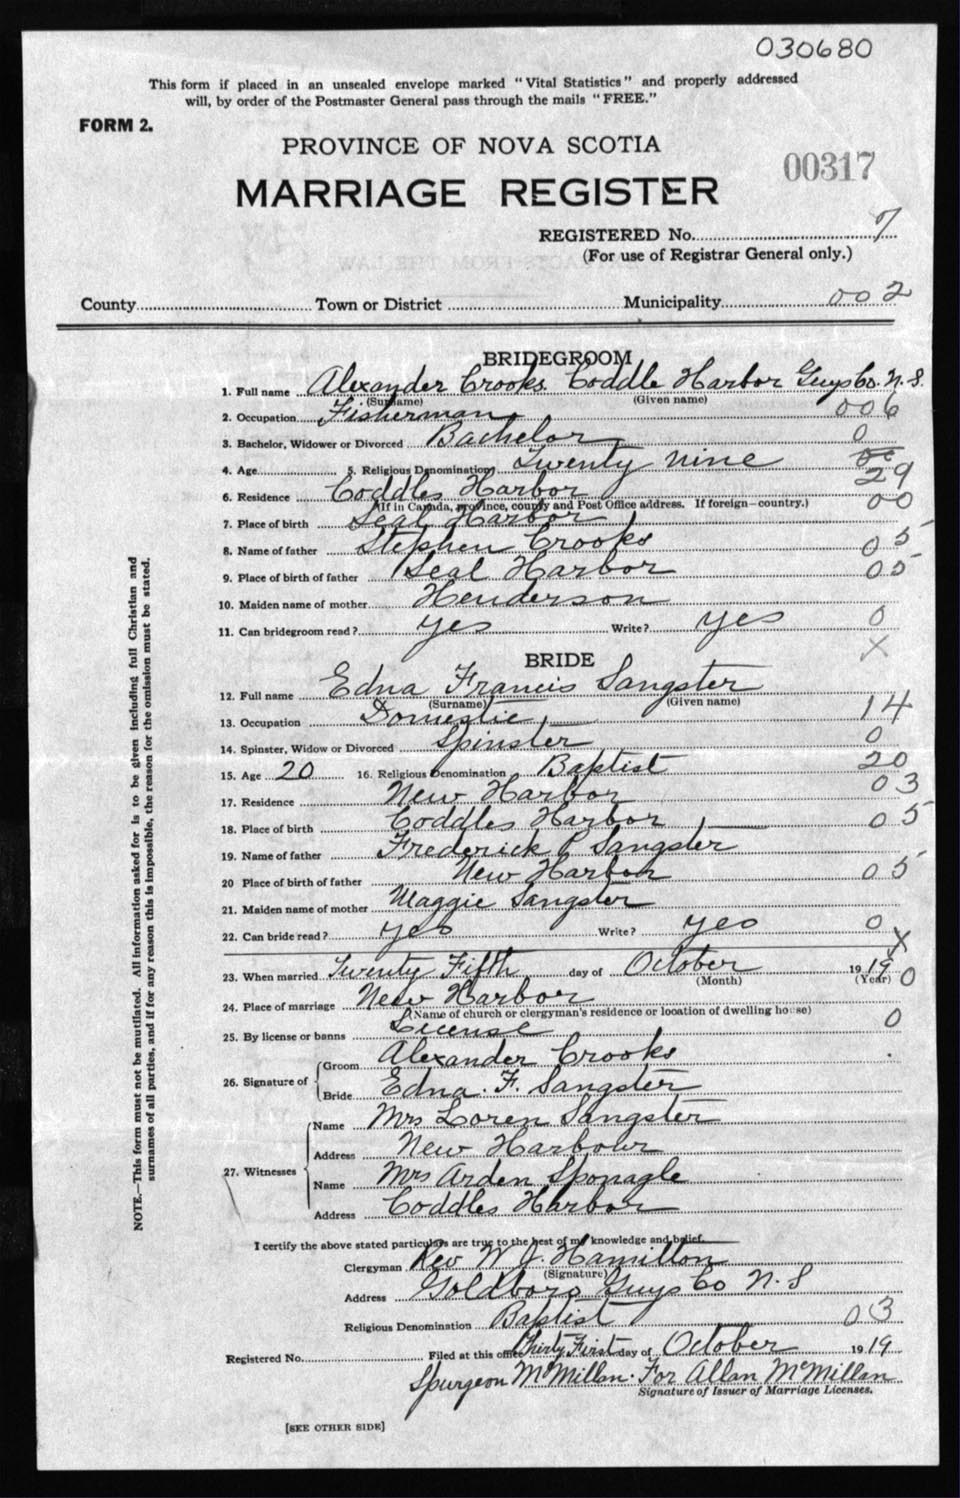 030680
This form if placed in an unsealed envelope marked "Vital Statistics" and properly addressed
will, by order of the Postmaster General pass through the mails "FREE."
FORM 2.
PROVINCE OF NOVA SCOTIA
00317
MARRIAGE REGISTER
REGISTERED No. 7
(For use of Registrar General only.)
County Town or District Municipality 002
BRIDEGROOM
1. Full name Alexander Crooks. Coddle Harbor Guys Co. N.S.
(Surname) (Given name)
2. Occupation Fisherman 006
3. Bachelor, Widower or Divorced Bachelor 0
4. Age 5. Religious Denomination Twenty nine 29
6. Residence Coddles Harbor 00
(If in Canada, province, county and Post Office address. If foreign—country.)
7. Place of birth Seal Harbor
8. Name of father Stephen Crooks 05
9. Place of birth of father Seal Harbor 05
10. Maiden name of mother Henderson
11. Can bridegroom read? yes Write? yes 0
X
BRIDE
12. Full name Edna Francis Sangster
(Surname) (Given name)
13. Occupation Domestic 14
14. Spinster, Widow or Divorced Spinster 0
15. Age 20 16. Religious Denomination Baptist 20
17. Residence New Harbor 03
18. Place of birth Coddles Harbor 05
19. Name of father Frederick P Sangster
20 Place of birth of father New Harbor 05
21. Maiden name of mother Maggie Sangster
22. Can bride read? yes Write? yes 0
X
23. When married Twenty Fifth day of October 1919 0
(Month) (Year)
24. Place of marriage New Harbor
(Name of church or clergyman's residence or location of dwelling house) 0
25. By license or banns License
26. Signature of Groom Alexander Crooks
Bride Edna. F. Sangster
27. Witnesses Name Mrs Loren Sangster
Address New Harbour
Name Mrs Arden Sponagle
Address Coddles Harbor
I certify the above stated particulars are true to the best of my knowledge and belief.
Clergyman Rev W J. Hamilton
(Signature)
Address Goldboro Guys Co N.S
Religious Denomination Baptist 03
Registered No. Filed at this office Thirty First day of October 1919
Spurgeon McMillan. For Allan McMillan
Signature of Issuer of Marriage Licenses.
[SEE OTHER SIDE]
NOTE.—This form must not be mutilated. All information asked for is to be given including full Christian and
surnames of all parties, and if for any reason this is impossible, the reason for the omission must be stated.